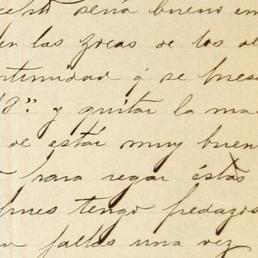 sería bueno en
en las zocas de los de
tunidad q se pres
y quitar la ma
de estar muy buen
para regar éstas
pues tengo pedazos
fallas una vez